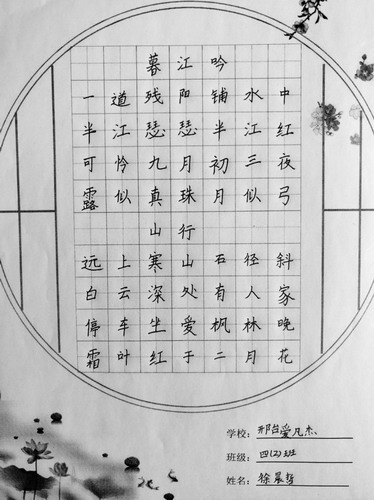 暮江吟
一道残阳铺水中
半江瑟瑟半江红
可怜九月初三夜
露似真珠月似弓
山行
远上寒山石径斜
白云深处有人家
停车坐爱枫林晚
霜叶红于二月花
学校：邢台爱凡杰
班级：四(2)班
姓名：徐晨